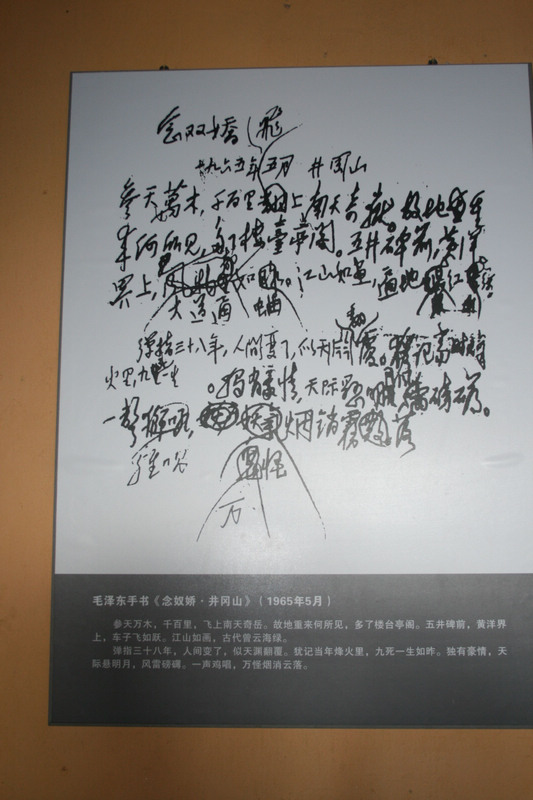 念奴娇 飛
一九六五年五月 井冈山
參天萬木，千百里 上南天奇嶽。故地重
来何所见，多了楼臺亭阁。五井碑前，黄洋
界上，
江山如画，
大道通
弹指三十八年，人间变了，似天渊
翻
覆。犹记当时烽
火里，九死一生
。独有豪情，天际悬明
月，风雷磅礴。
一声鸡唱，
烟销 落
雞唱
万
毛泽东手书《念奴娇·井冈山》（1965年5月）
参天万木，千百里，飞上南天奇岳。故地重来何所见，多了楼台亭阁。五井碑前，黄洋界
上，车子飞如跃。江山如画，古代曾云海绿。
弹指三十八年，人间变了，似天渊翻覆。犹记当年烽火里，九死一生如昨。独有豪情，天
际悬明月，风雷磅礴。一声鸡唱，万怪烟消云落。